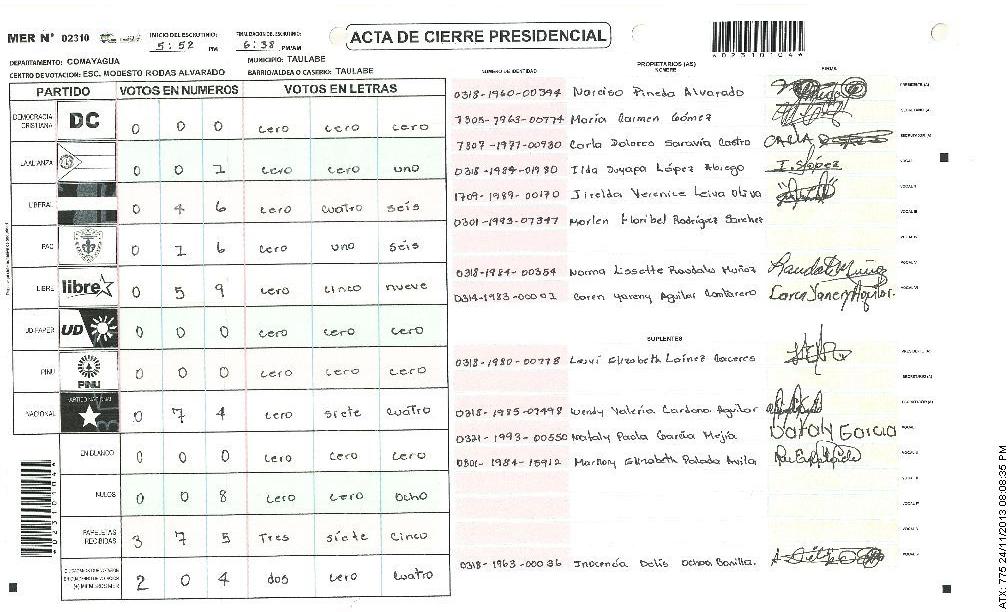 MER N° 02310
INICIO DEL ESCRUTINIO: 5:52 PM
FINALIZACION DEL ESCRUTINIO: 6:38 PM/AM
ACTA DE CIERRE PRESIDENCIAL
*02310104*
DEPARTAMENTO: COMAYAGUA
MUNICIPIO: TAULABE
CENTRO DE VOTACION: ESC. MODESTO RODAS ALVARADO
BARRIO/ALDEA O CASERIO: TAULABE
PARTIDO VOTOS EN NUMEROS VOTOS EN LETRAS
DEMOCRACIA CRISTIANA DC 0 0 0 cero cero cero
LA ALIANZA 0 0 1 cero cero uno
LIBERAL 0 4 6 cero cuatro seis
PAC 0 1 6 cero uno seis
LIBRE libre 0 5 9 cero cinco nueve
UD-FAPER UD 0 0 0 cero cero cero
PINU PINU 0 0 0 cero cero cero
NACIONAL 0 7 4 cero siete cuatro
EN BLANCO 0 0 0 cero cero cero
NULOS 0 0 8 cero cero ocho
PAPELETAS RECIBIDAS 3 7 5 Tres siete cinco
2 0 4 dos cero cuatro
*02310104*
NUMERO DE IDENTIDAD PROPIETARIOS (AS) NOMBRE FIRMA
0318-1960-00394 Narciso Pineda Alvarado PRESIDENTE (A)
Maria Carmen Gómez SECRETARIO (A)
Carla Dolores Saravia Castro ESCRUTADOR (A)
0318-1984-01980 Ilda Suyapa López Abiego I. S López VOCAL I
1709-1989-00170 Jirelda Verenice Leiva Oliva VOCAL II
0301-1993-07347 Marlen Floribel Rodriguez Sanchez VOCAL III
0318-1984-00354 Norma Lissette Raudales Muñoz VOCAL V
Caren Yareny Aguilar
SUPLENTES
0318-1980-00778 Lesvi Elizabeth Lainez Caceres PRESIDENTE (A)
SECRETARIO (A)
0318-1985-01498 Wendy Valeria Cardona Aguilar ESCRUTADOR (A)
0321-1993-00550 Nataly Paola Garcia Mejia Nataly Garcia
0801-1984-15912 Elizabeth Avila
0318-1963-00036 Inocencia Delis Ochoa Bonilla.
ATX: 775 24/11/2013 08:08:35 PM